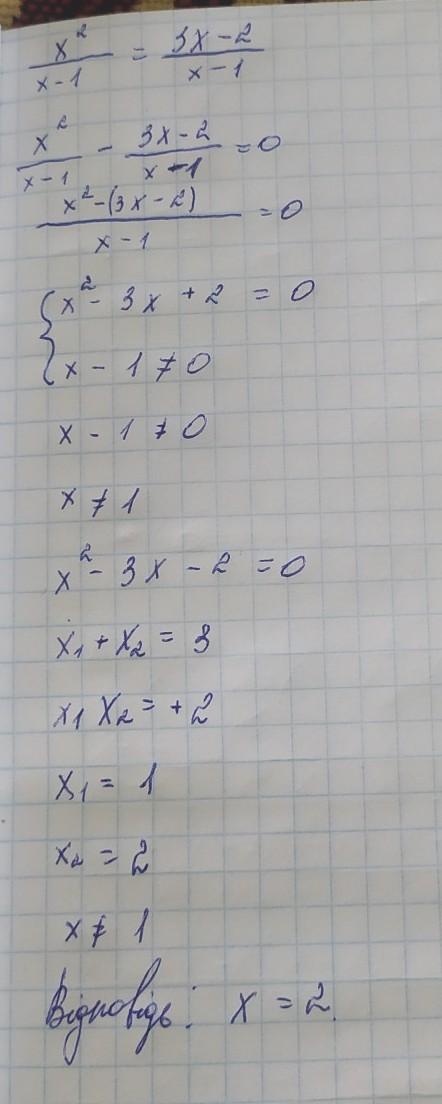 x²/(x-1) = (3x-2)/(x-1)
x²/(x-1) - (3x-2)/(x-1) = 0
(x²-(3x-2))/(x-1) = 0
{x² - 3x + 2 = 0
x - 1 ≠ 0
x - 1 ≠ 0
x ≠ 1
x² - 3x - 2 = 0
x₁ + x₂ = 3
x₁ x₂ = +2
x₁ = 1
x₂ = 2
x ≠ 1
Відповідь: x = 2.